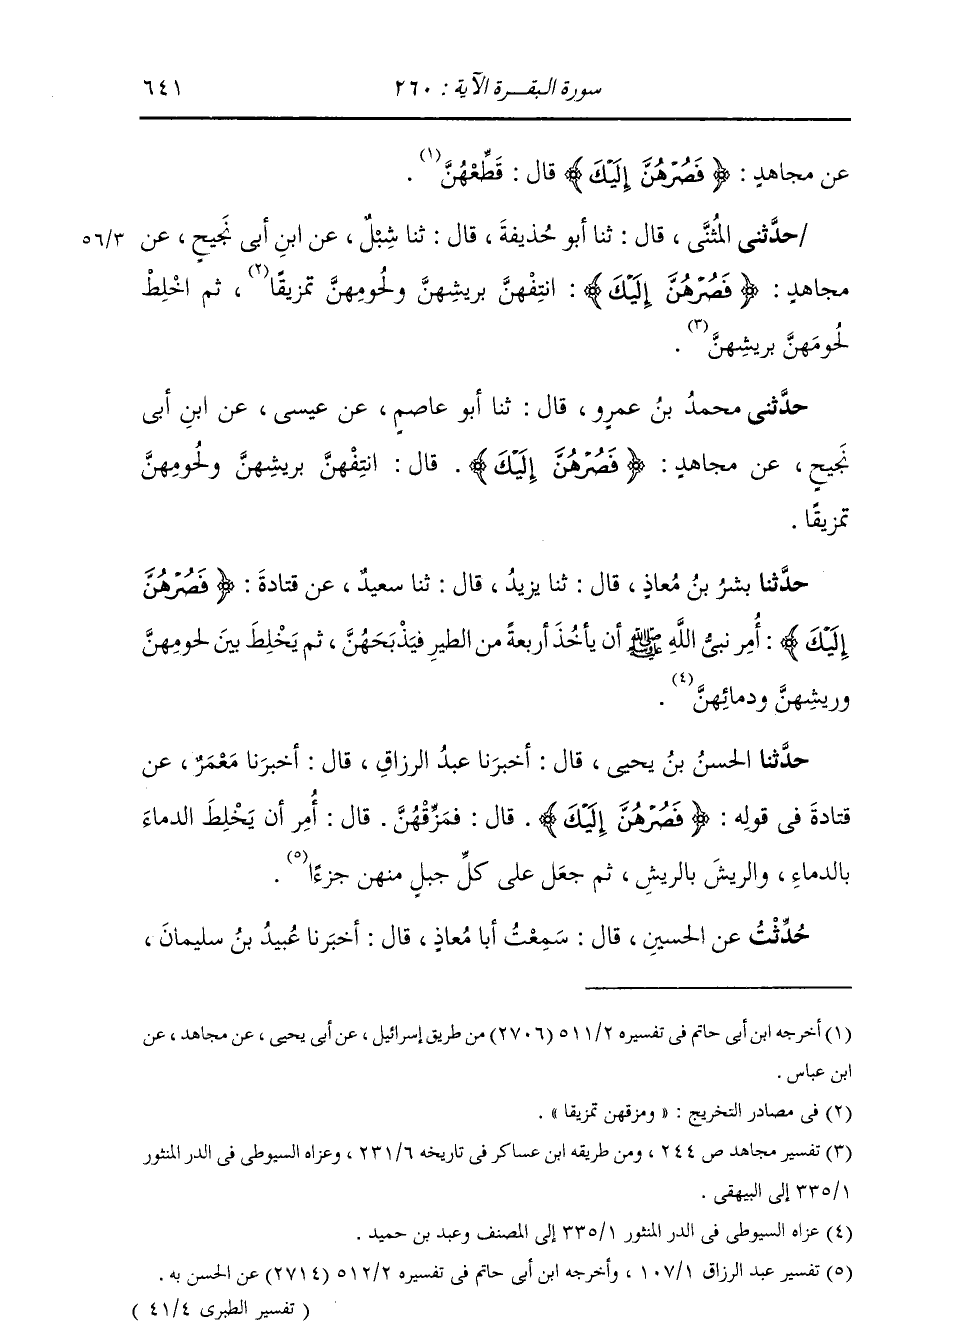 سورة البقــرة الآية : ٢٦٠ ٦٤١
عن مجاهدٍ : ﴿ فَصُرْهُنَّ إِلَيْكَ ﴾ قال : قَطِّعْهُنَّ(١) .
/حدَّثنى المُثنَّى ، قال : ثنا أبو حُذيفةَ ، قال : ثنا شِبْلٌ ، عن ابنِ أبى نَجيحٍ ، عن ٥٦/٣
مجاهدٍ : ﴿ فَصُرْهُنَّ إِلَيْكَ ﴾ : انتِفْهنَّ بريشِهنَّ ولُحومِهنَّ تمزيقًا(٢) ، ثم اخْلِطْ
لُحومَهنَّ بريشِهنَّ(٣) .
حدَّثنى محمدُ بنُ عمرٍو ، قال : ثنا أبو عاصمٍ ، عن عيسى ، عن ابنِ أبى
نَجيحٍ ، عن مجاهدٍ : ﴿ فَصُرْهُنَّ إِلَيْكَ ﴾ . قال : انتِفْهنَّ بريشِهنَّ ولُحومِهنَّ
تمزيقًا .
حدَّثنا بشرُ بنُ مُعاذٍ ، قال : ثنا يزيدُ ، قال : ثنا سعيدٌ ، عن قتادةَ : ﴿ فَصُرْهُنَّ
إِلَيْكَ ﴾ : أُمِر نبىُّ اللَّهِ ﷺ أن يأخُذَ أربعةً من الطيرِ فيَذْبَحَهُنَّ ، ثم يَخْلِطَ بينَ لحومِهنَّ
وريشِهنَّ ودمائِهنَّ(٤) .
حدَّثنا الحسنُ بنُ يحيى ، قال : أخبرَنا عبدُ الرزاقِ ، قال : أخبرَنا مَعْمَرٌ ، عن
قتادةَ فى قولِه : ﴿ فَصُرْهُنَّ إِلَيْكَ ﴾ . قال : فمَزِّقْهُنَّ . قال : أُمِر أن يَخْلِطَ الدماءَ
بالدماءِ ، والريشَ بالريشِ ، ثم جعَل على كلِّ جبلٍ منهن جزءًا(٥) .
حُدِّثْتُ عن الحسينِ ، قال : سَمِعْتُ أبا مُعاذٍ ، قال : أخبَرنا عُبيدُ بنُ سليمانَ ،
(١) أخرجه ابن أبى حاتم فى تفسيره ٥١١/٢ (٢٧٠٦) من طريق إسرائيل ، عن أبى يحيى ، عن مجاهد ، عن
ابن عباس .
(٢) فى مصادر التخريج : « ومزقهن تمزيقا » .
(٣) تفسير مجاهد ص ٢٤٤ ، ومن طريقه ابن عساكر فى تاريخه ٢٣١/٦ ، وعزاه السيوطى فى الدر المنثور
٣٣٥/١ إلى البيهقى .
(٤) عزاه السيوطى فى الدر المنثور ٣٣٥/١ إلى المصنف وعبد بن حميد .
(٥) تفسير عبد الرزاق ١٠٧/١ ، وأخرجه ابن أبى حاتم فى تفسيره ٥١٢/٢ (٢٧١٤) عن الحسن به .
( تفسير الطبرى ٤١/٤ )